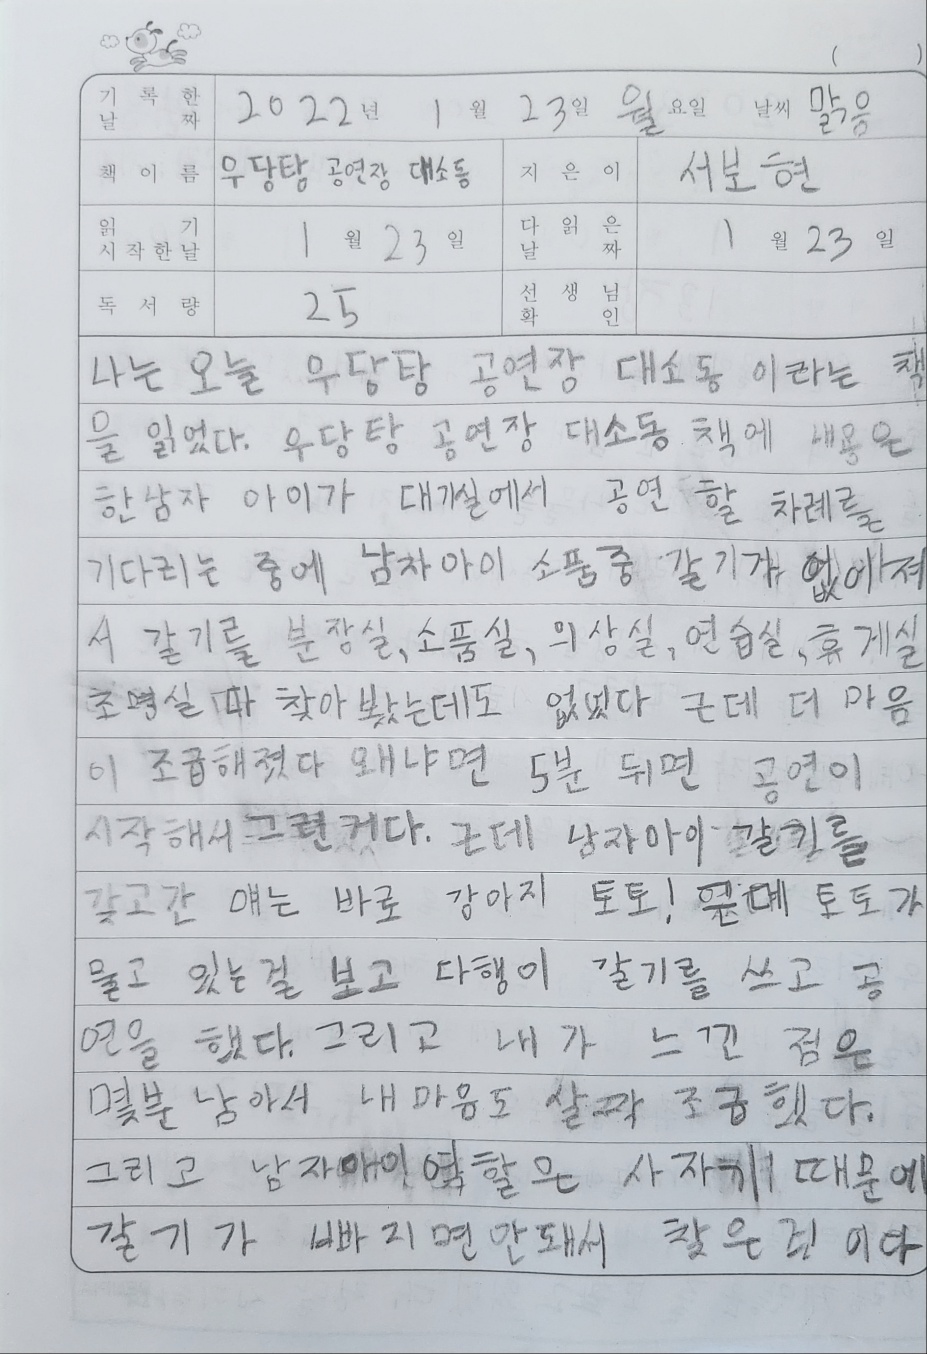 ( )
기록한 날짜 2022년 1월 23일 월요일 날씨 맑음
책이름 우당탕 공연장 대소동 지은이 서보현
읽기 시작한날 1월 23일 다읽은 날짜 1월 23일
독서량 25 선생님 확인
나는 오늘 우당탕 공연장 대소동 이라는 책
을 읽었다. 우당탕 공연장 대소동 책에 내용은
한남자 아이가 대기실에서 공연 할 차례를
기다리는 중에 남자아이 소품중 갈기가 없어져
서 갈기를 분장실, 소품실, 의상실, 연습실, 휴게실
조명실 다 찾아 봤는데도 없었다 근데 더 마음
이 조급해졌다 왜냐면 5분 뒤면 공연이
시작해서 그런거다. 근데 남자아이 갈기를
갖고간 얘는 바로 강아지 토토! 토토가
물고 있는걸 보고 다행이 갈기를 쓰고 공
연을 했다. 그리고 내가 느낀 점은
몇분 남아서 내마음도 살짝 조급했다.
그리고 역할은 사자기 때문에
갈기가 빠지면 안돼서 찾은 이다